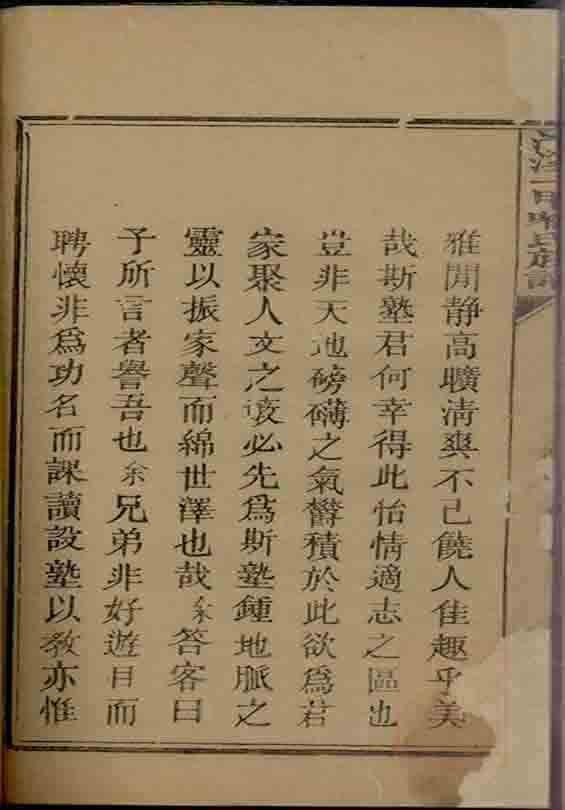 雅閒静高曠淸爽不己饒人佳趣乎美
哉斯塾君何幸得此怡情適志之區也
豈非天地磅礴之氣欝積於此欲爲君
家聚人文之家必先爲斯塾鍾地脈之
靈以振家聲而綿世澤也哉余答客曰
子所言者譽吾也余兄弟非好遊目而
聘懷非爲功名而課讀設塾以教亦惟